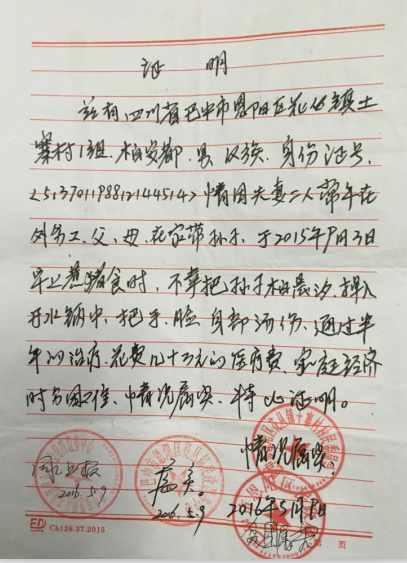 证 明
兹有四川省巴中市恩阳区花丛镇土
寨村1组、柏安都、男、汉族、身份证号、
<513701198812144514>情因夫妻二人常年在
外务工、父、母、在家带孙子、于2015年9月3日
早上煮猪食时、不幸把孙子柏晨汐、掉入
开水锅中、把手、脸、身部汤伤、通过半
年的治疗、花费几十万元的医疗费、家庭经济
时分困难、情况属实、特此证明。
情况属实
2016.5.9
属实。
2016.5.9
2016年5月8日
ED CA126.37.2015
页